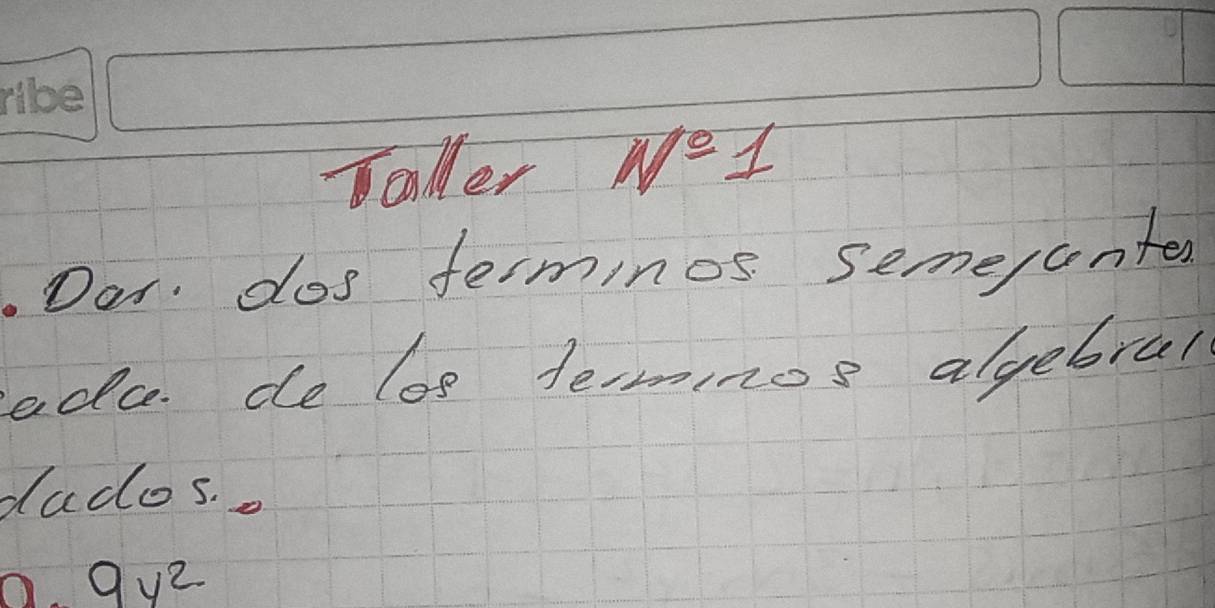 ribe
Taller Nº 1
. Dar. dos terminos semejantes
cada de los terminos algebraic
dados.
a. 9y²